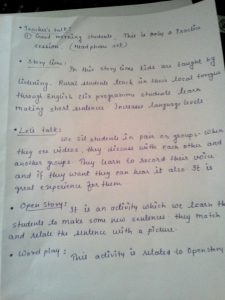 • Teacher's talk:
① Good morning students, This is only a Practice
session (Head phone set)
• Story time: In this story time kids are taught by
listening. Rural students teach in their local tongue
through English clix programme students learn
making short sentences. Increase language levels
• Let's talk:
We sit students in pair or groups. when
they see videos, they discuss with each other and
another groups. They learn to record their voice
and if they want they can hear it also It is
great experience for them.
• Open Story: It is an activity which we learn the
students to make some new sentences. they match
and relate the sentence with a picture.
• Word play: This activity is related to Openstory